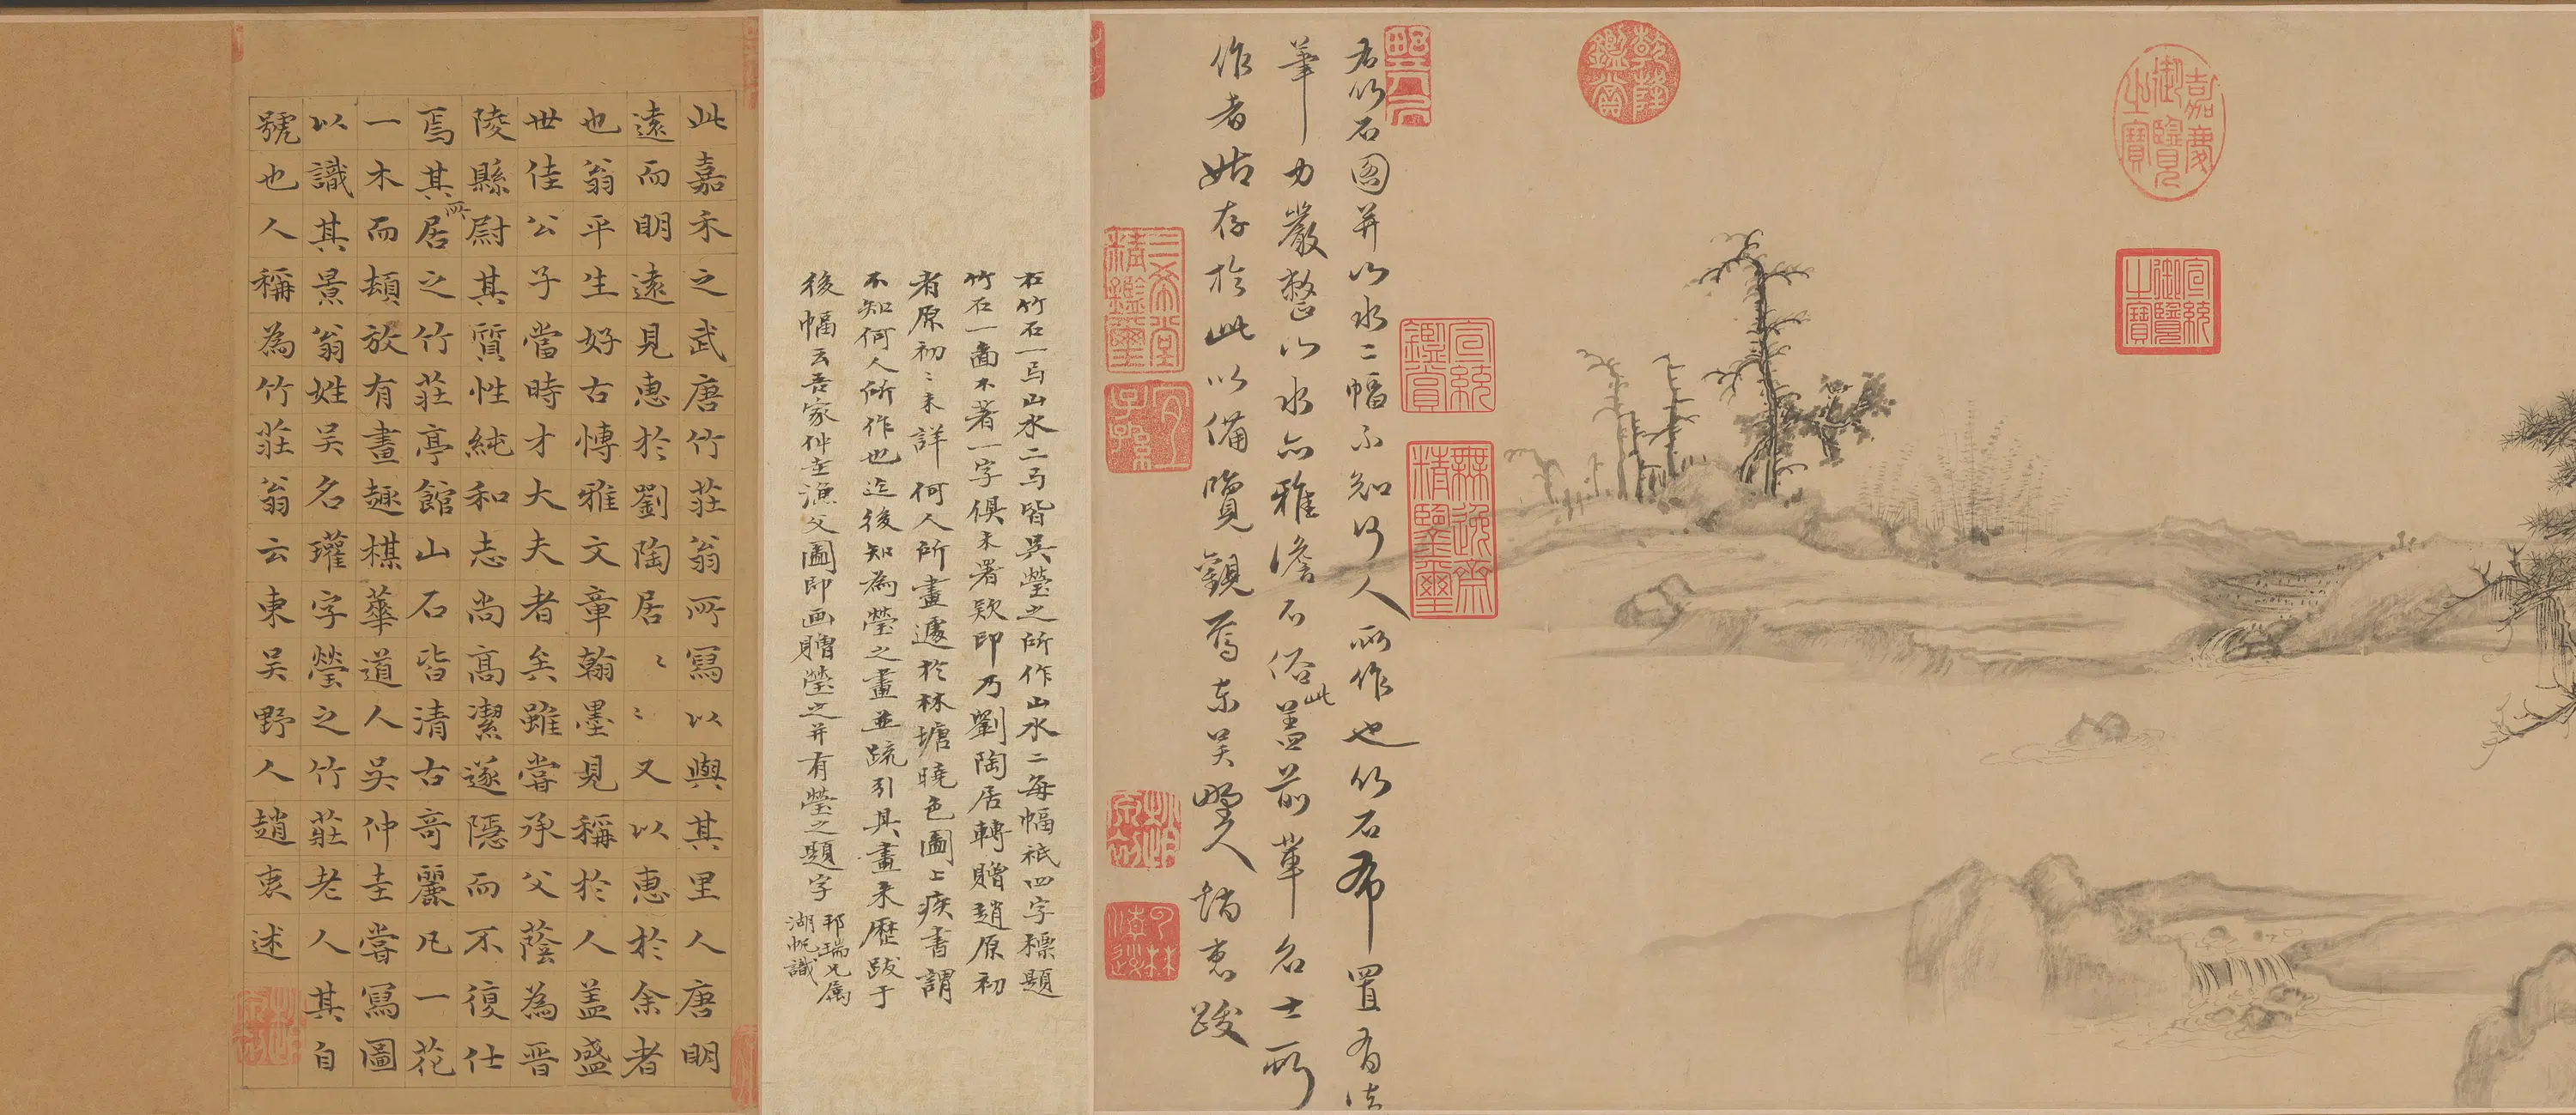 嘉慶御覽之寶
宣統御覽之寶
乾隆鑑賞
宣統鑑賞
無逸齋精鑒璽
右竹石圖并山水二幅不知何人所作也竹石布置有法
筆力嚴整山水亦雅澹不俗此蓋前輩名士所
作者姑存於此以備覽觀焉東吴野人趙衷跋
三希堂精鑑璽
宜子孫
右竹石一山水二皆吳瑩之所作山水二每幅祇四字標題
竹石一圖不著一字俱未署款印乃劉陶居轉贈趙原初
者原初〻未詳何人所畫遽於林塘曉色圖上疾書謂
不知何人所作也迄後知為瑩之畫並疏引其畫來歷跋于
後幅云吾家仲圭漁父圖即画贈瑩之并有瑩之題字
邦瑞兄屬
湖帆識
此嘉禾之武唐竹莊翁所寫以與其里人唐明
遠而明遠見惠於劉陶居〻〻又以惠於余者
也翁平生好古博雅文章翰墨見稱於人盖盛
世佳公子當時才大夫者矣雖嘗承父蔭為晋
陵縣尉其質性純和志尚高潔遂隱而不復仕
焉其所居之竹莊亭館山石皆清古竒麗凡一花
一木而頡放有畫趣楳華道人吴仲圭嘗寫圖
以識其景翁姓吴名瓘字瑩之竹莊老人其自
號也人稱為竹莊翁云東吴野人趙衷述